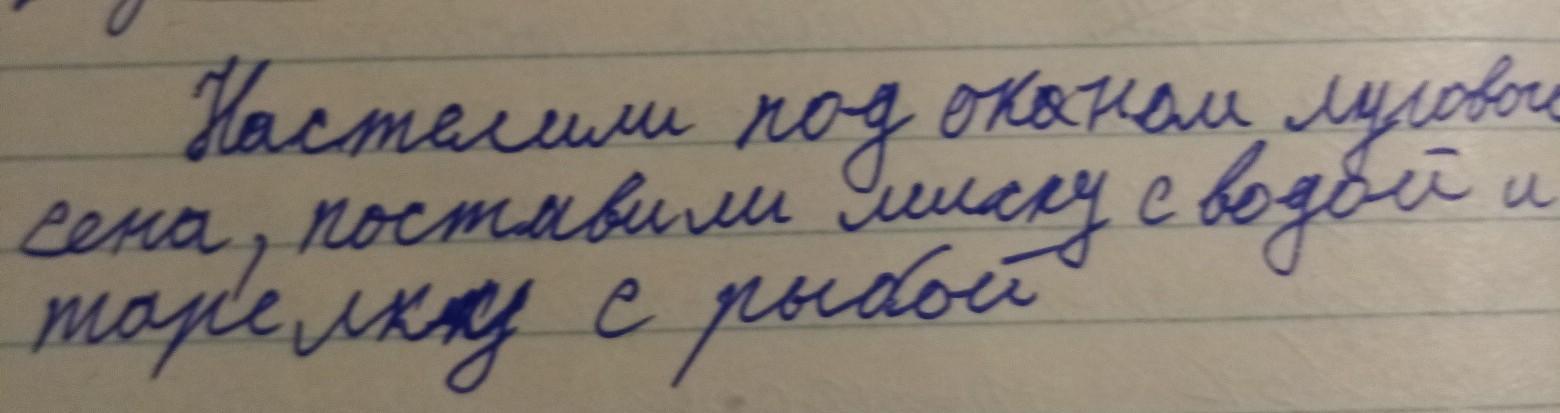 Настелили под оканом лугового
сена, поставили миску с водой и
тарелку с рыбой